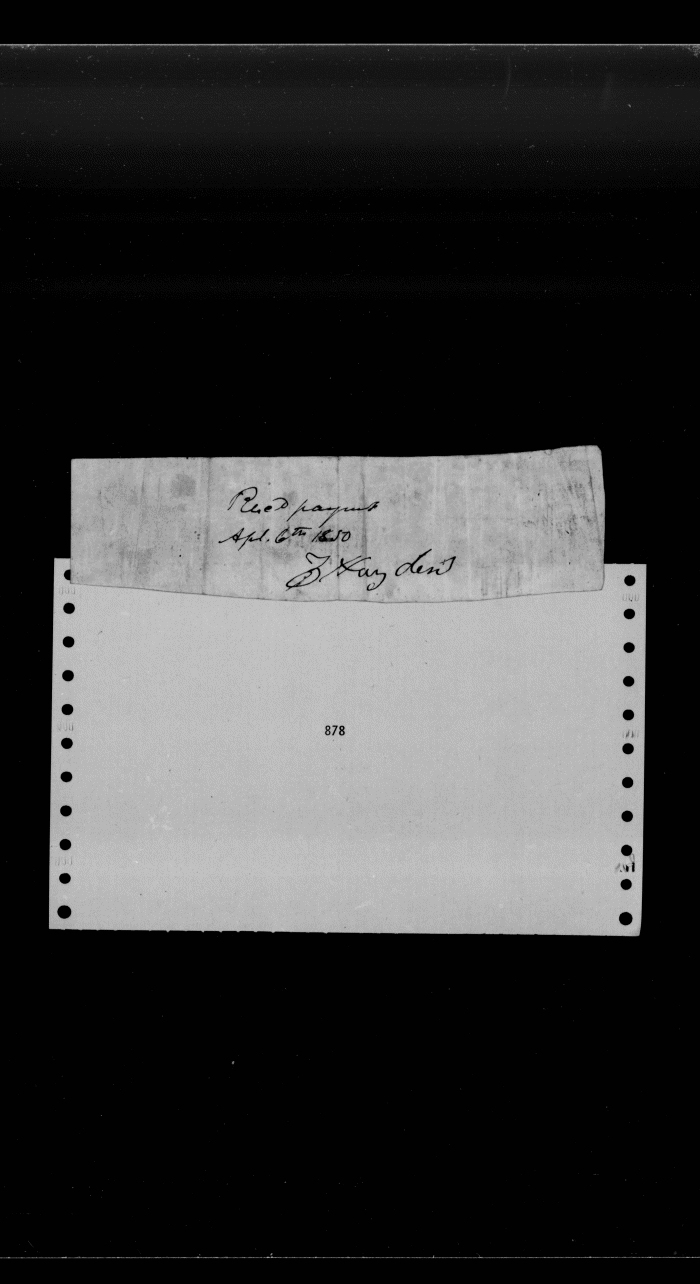 Rec'd paymt
Apl. 6th 1850
Hayden
878